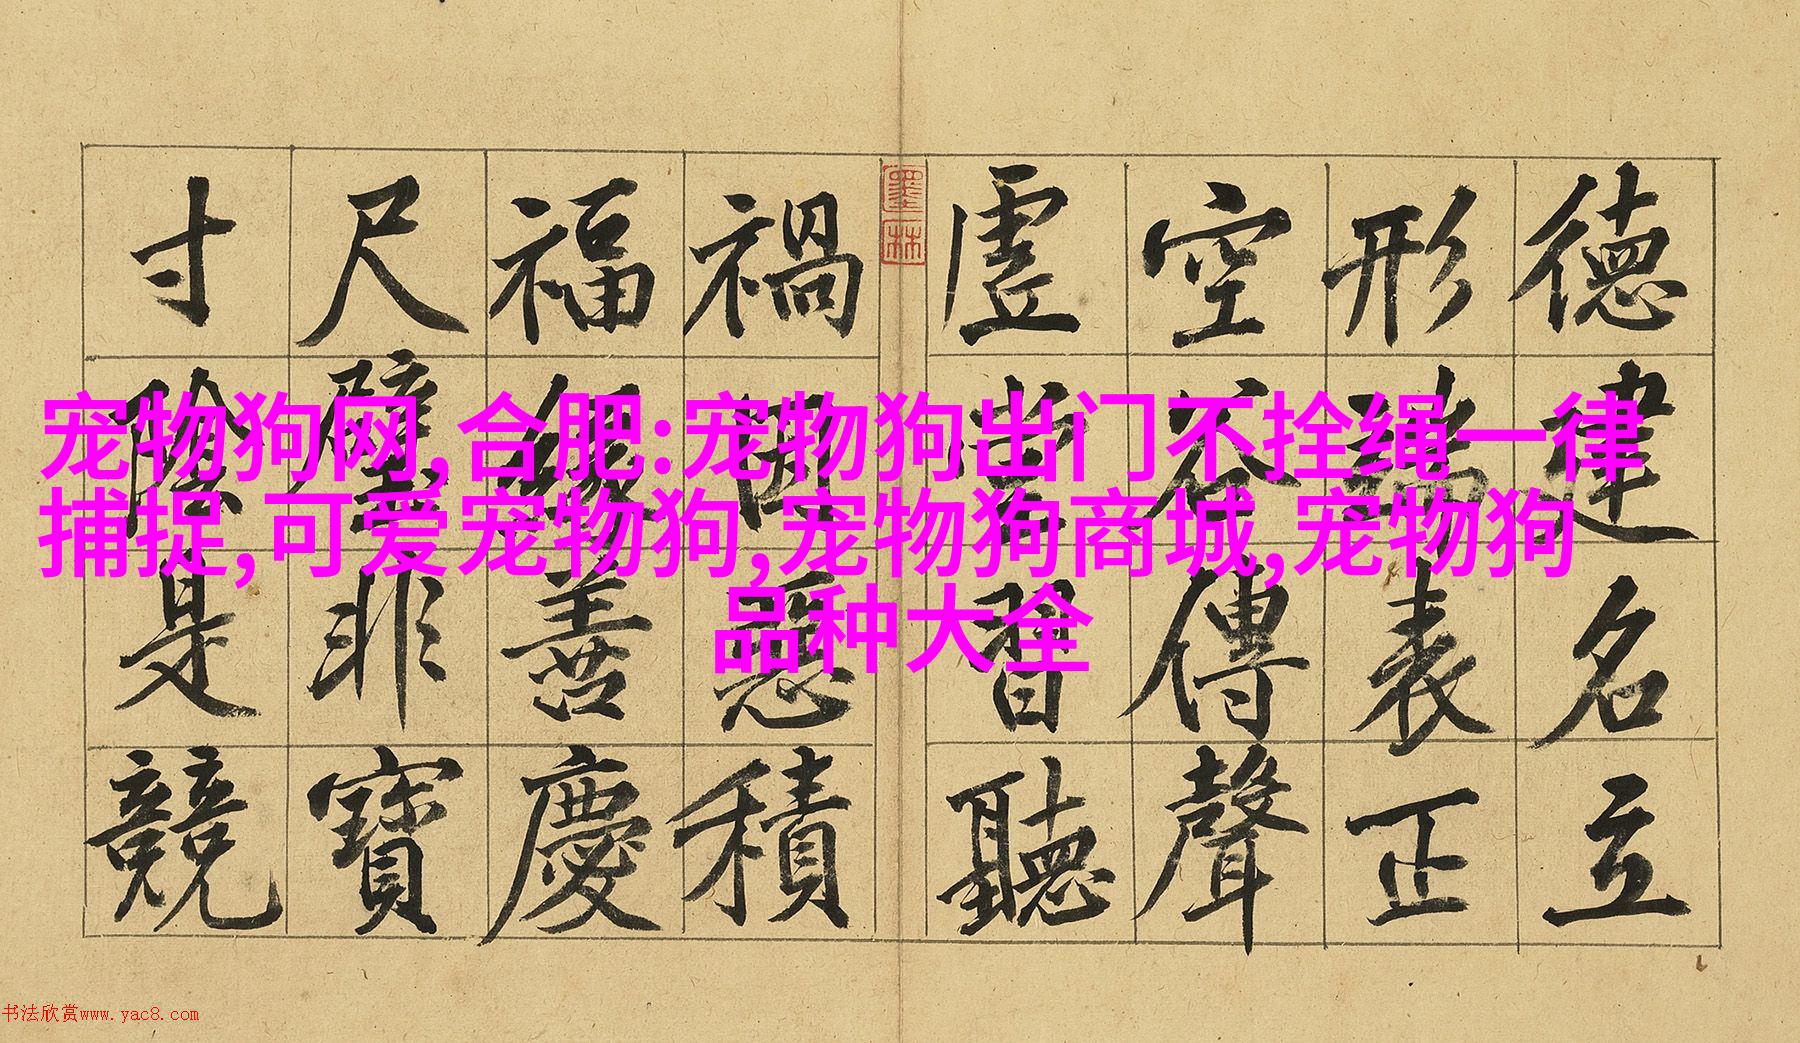 德建名立
形端表正
空谷傳聲
虛堂習聽
墨林
禍因惡積
福緣善慶
尺璧非寶
寸陰是競
宠物狗网,合肥:宠物狗出门不拴绳一律
捕捉,可爱宠物狗,宠物狗商城,宠物狗
品种大全
书法欣赏www.yac8.com